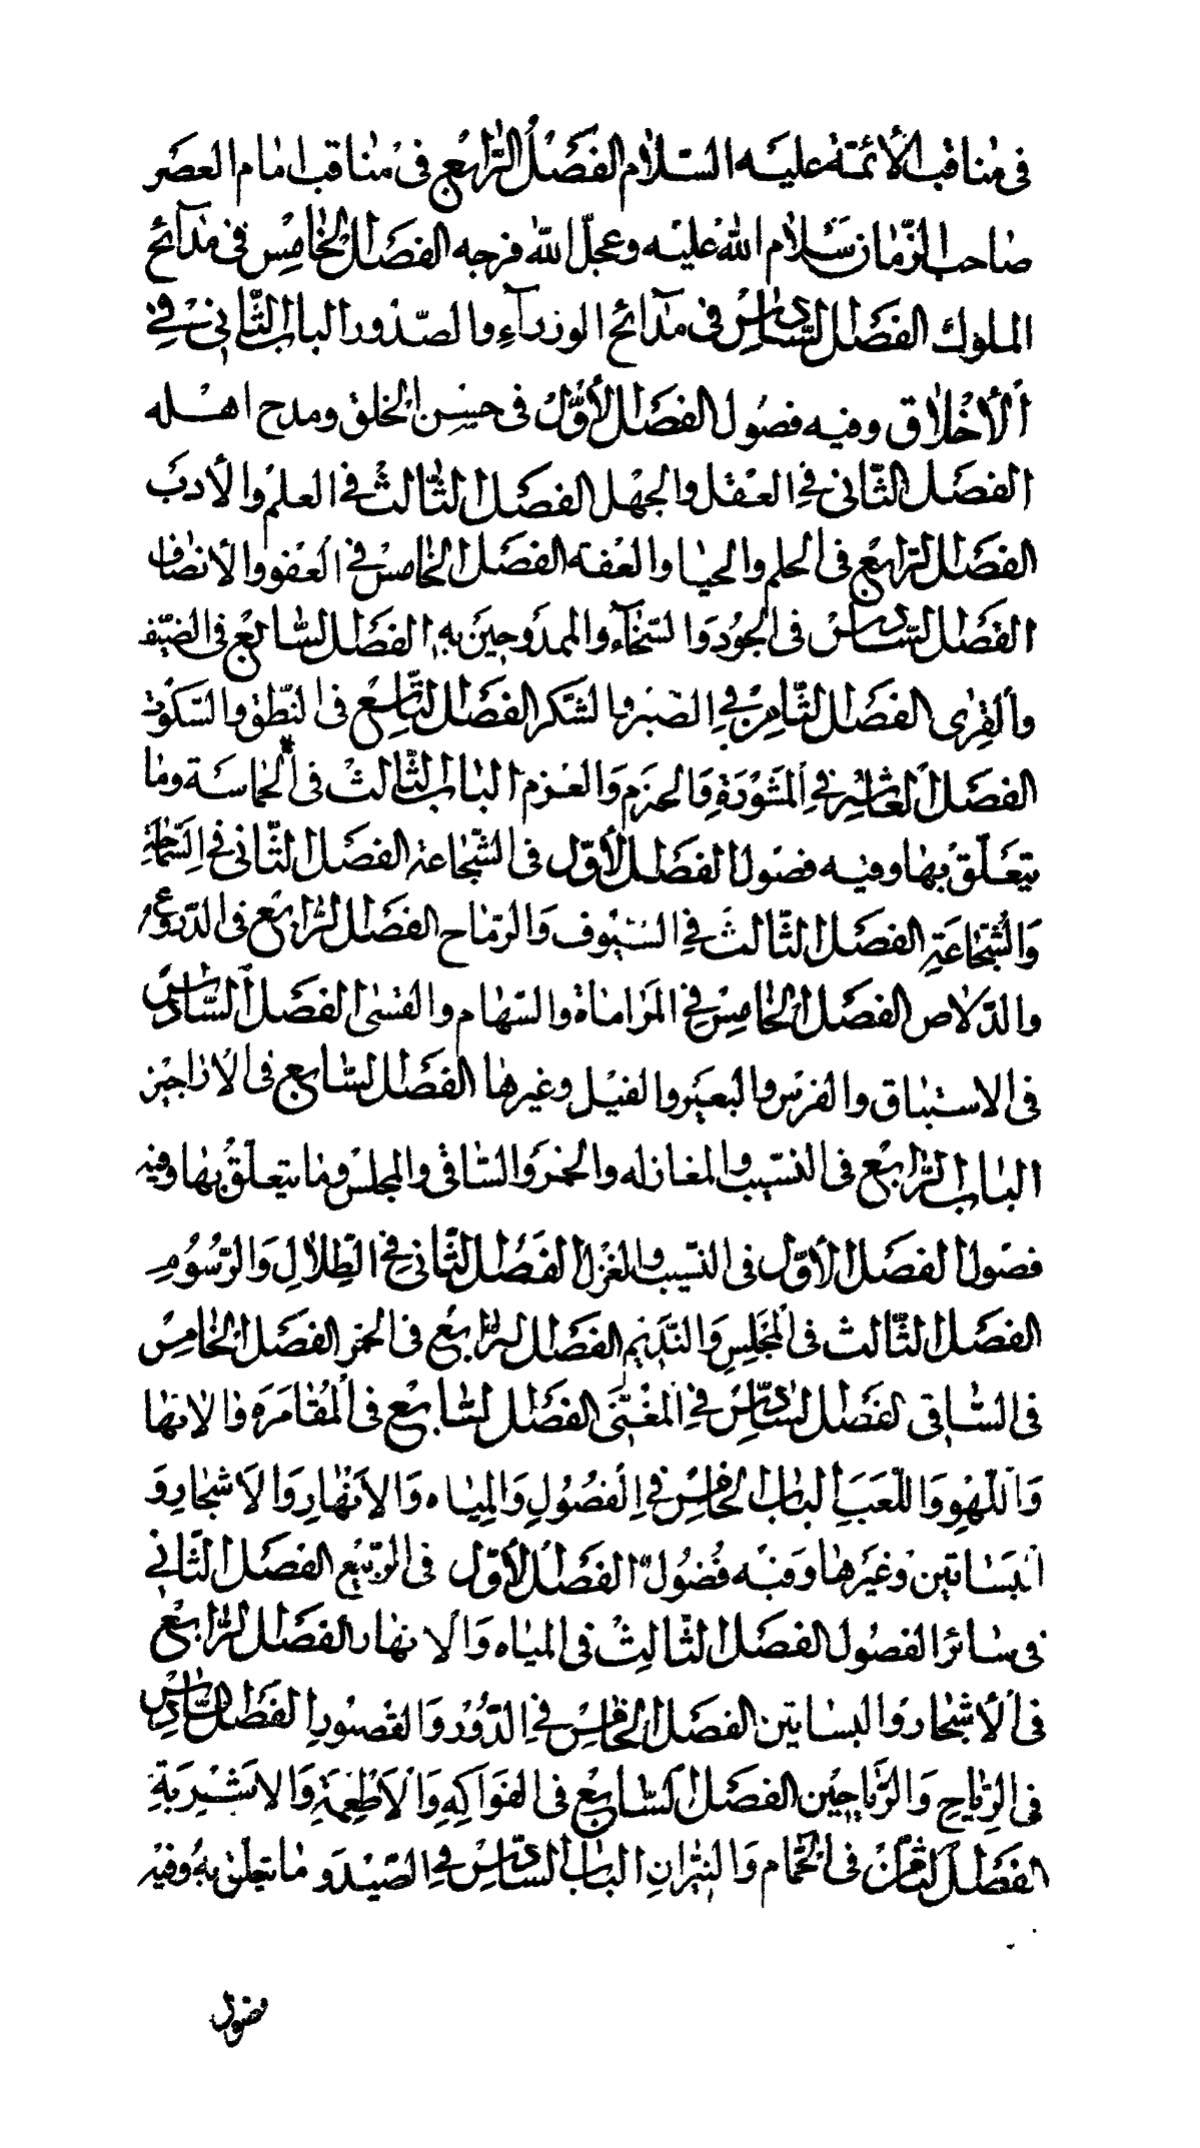 في مناقب الأئمة عليه السلام الفصل الرابع في مناقب امام العصر
صاحب الزمان سلام الله عليه وعجل الله فرجه الفصل الخامس في مدآئح
الملوك الفصل السادس في مدآئح الوزرآء والصدور الباب الثاني في
الأخلاق وفيه فصول الفصل الأول في حسن الخلق ومدح اهله
الفصل الثاني في العقل والجهل الفصل الثالث في العلم والأدب
الفصل الرابع في الحلم والحيا والعفة الفصل الخامس في العفو والأنصاف
الفصل السادس في الجود والسخآء والممدوحين به الفصل السابع في الضيف
والقرى الفصل الثامن في الصبر والشكر الفصل التاسع في النطق والسكوت
الفصل العاشر في المشورة والحزم والعزم الباب الثالث في الحماسة وما
يتعلق بها وفيه فصول الفصل الأول في الشجاعة الفصل الثاني في السماحة
والشجاعة الفصل الثالث في السيوف والرماح الفصل الرابع في الدروع
والدلاص الفصل الخامس في المراماة والسهام والقسى الفصل السادس
في الاستباق والفرس والبعير والفيل وغيرها الفصل السابع في الاراجيز
الباب الرابع في النسيب والمغازله والخمر والساقي والمجلس وما يتعلق بها وفيه
فصول الفصل الأول في النسيب والغزل الفصل الثاني في الطلال والرسوم
الفصل الثالث في المجلس والنديم الفصل الرابع في الخمر الفصل الخامس
في الساقي الفصل السادس في المغني الفصل السابع في المقامرة والانها
واللهو واللعب الباب الخامس في الفصول والمياه والانهار والاشجار و
البساتين وغيرها وفيه فصول الفصل الأول في الربيع الفصل الثاني
في سائر الفصول الفصل الثالث في المياه والانهار الفصل الرابع
في الأشجار والبساتين الفصل الخامس في الدور والقصور الفصل السادس
في الرياح والرياحين الفصل السابع في الفواكه والاطعمة والاشربة
الفصل الثامن في الحمام والنيران الباب السادس في الصيد وما يتعلق به وفيه
فصول